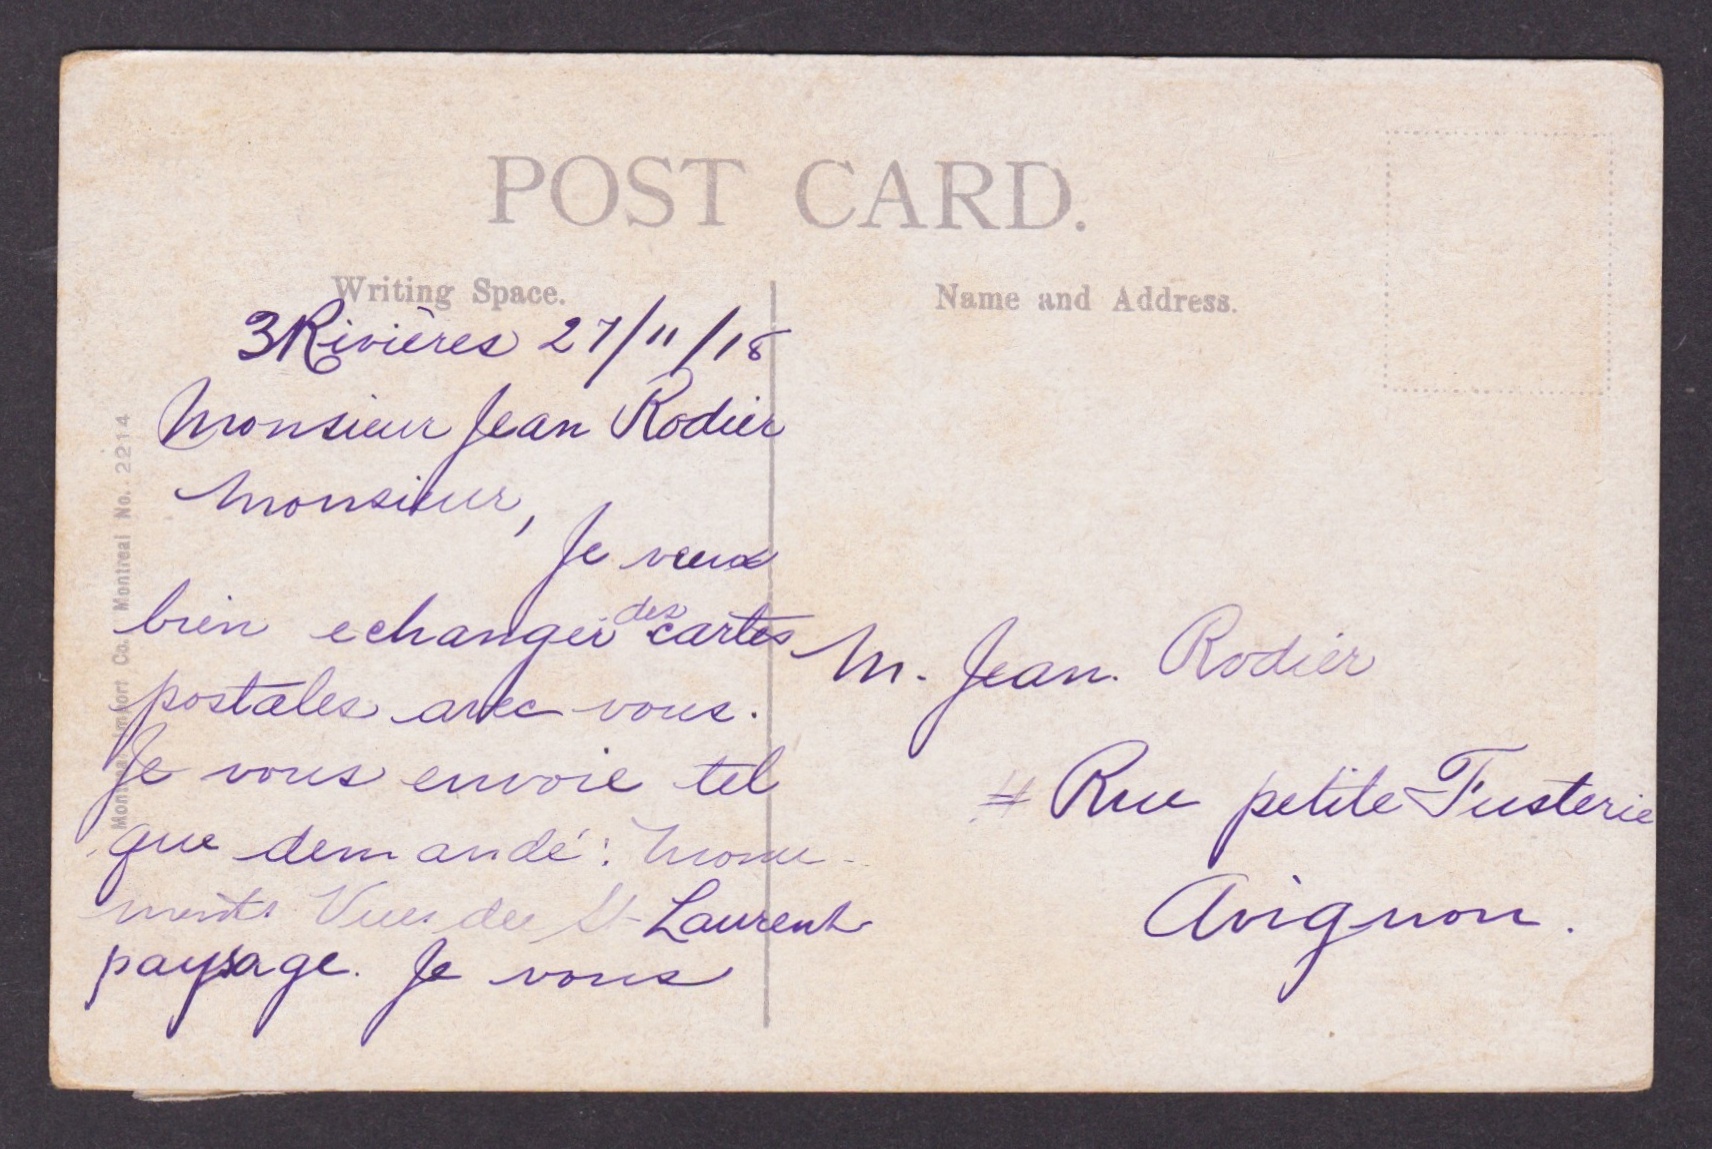 POST CARD.
Writing Space.
Name and Address.
3 Rivières 27/11/18
Monsieur Jean Rodier
Monsieur,
Je veux
bien echanger des cartes
postales avec vous.
Je vous envoie tel
que demandé: Monu-
ments Vues du St-Laurent
paysage. Je vous
M. Jean. Rodier
4 Rue petite Fusterie
Avignon.
Montreal Import Co., Montreal No. 2214